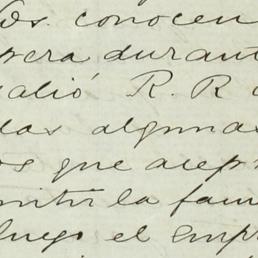 os. conocen
pera durant
alió R. R
das algunas
os que acep
mitir la fam
luego el emp